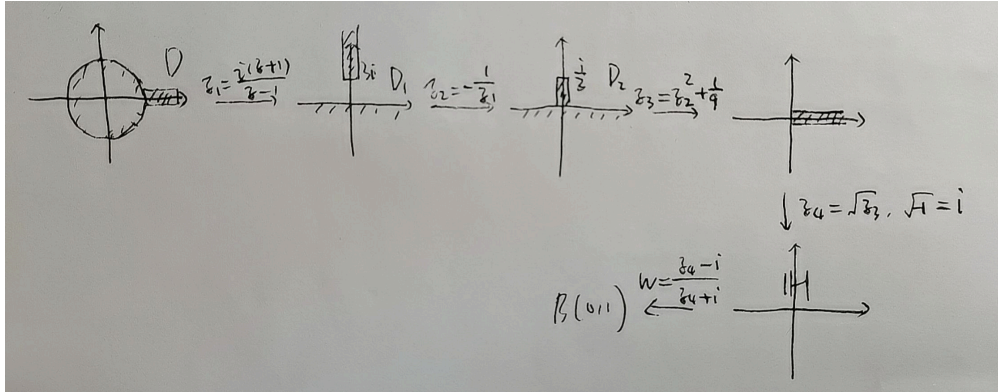 D
z₁ = i(z+1)/(z-1)
3i
D₁
z₂ = -1/z₁
i/3
D₂
z₃ = z₂² + 1/9
z₄ = √z₃, √-1 = i
H
w = (z₄-i)/(z₄+i)
B(0,1)